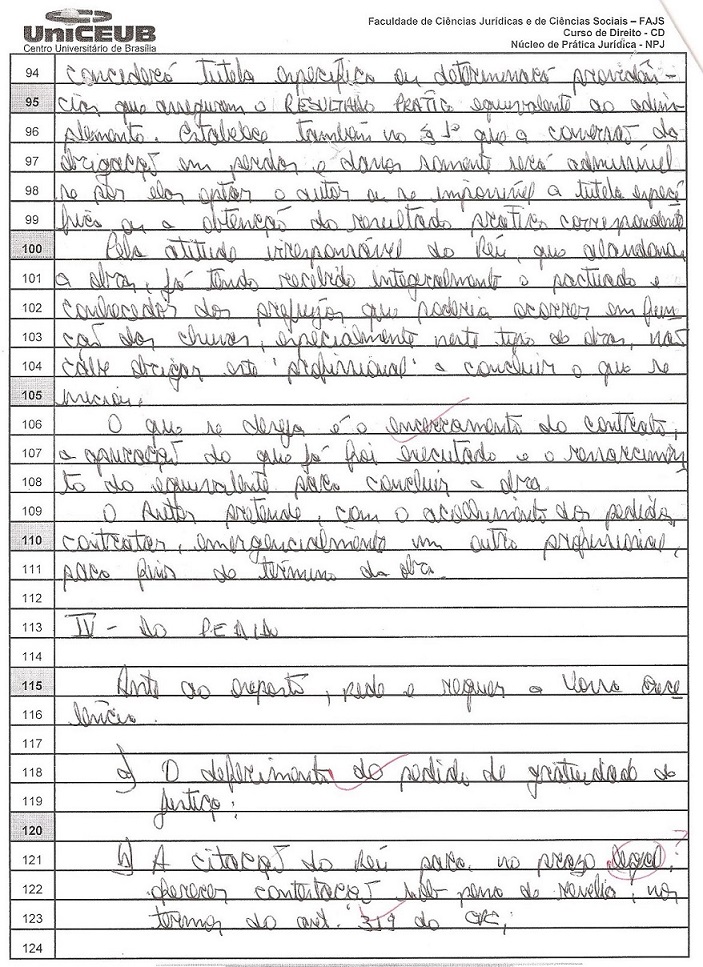 UniCEUB
Centro Universitário de Brasília
Faculdade de Ciências Jurídicas e de Ciências Sociais – FAJS
Curso de Direito - CD
Núcleo de Prática Jurídica - NPJ
94 concederá tutela específica ou determinará providên-
95 cias que assegurem o RESULTADO PRÁTICO equivalente ao adim
96 plemento. Estabelece também no § 1º que a conversão da
97 obrigação em perdas e danos somente será admissível
98 se por elas optar o autor ou se impossível a tutela especí
99 fica ou a obtenção do resultado prático correspondente
100 Pela atitude irresponsável do Réu, que abandonou
101 a obra, já tendo recebido integralmente o pactuado e
102 conhecedor dos prejuízos que poderia ocorrer em fun
103 ção das chuvas, especialmente neste tipo de obra, não
104 cabe obrigar este "profissional" a concluir o que se
105 iniciou.
106 O que se deseja é o encerramento do contrato,
107 a apuração do que já foi executado e o ressarcimen
108 to do equivalente para concluir a obra.
109 O Autor pretende, com o acolhimento dos pedidos,
110 contratar, emergencialmente um outro profissional,
111 para fins de termino da obra.
112
113 IV - DO PEDIDO
114
115 Ante ao exposto, pede e requer a Vossa Exce
116 lência.
117
118 a) O deferimento do pedido de gratuidade de
119 justiça;
120
121 b) A citação do Réu para, no prazo legal, ?
122 oferecer contestação sob pena de revelia, nos
123 termos do art. 319 do CPC;
124